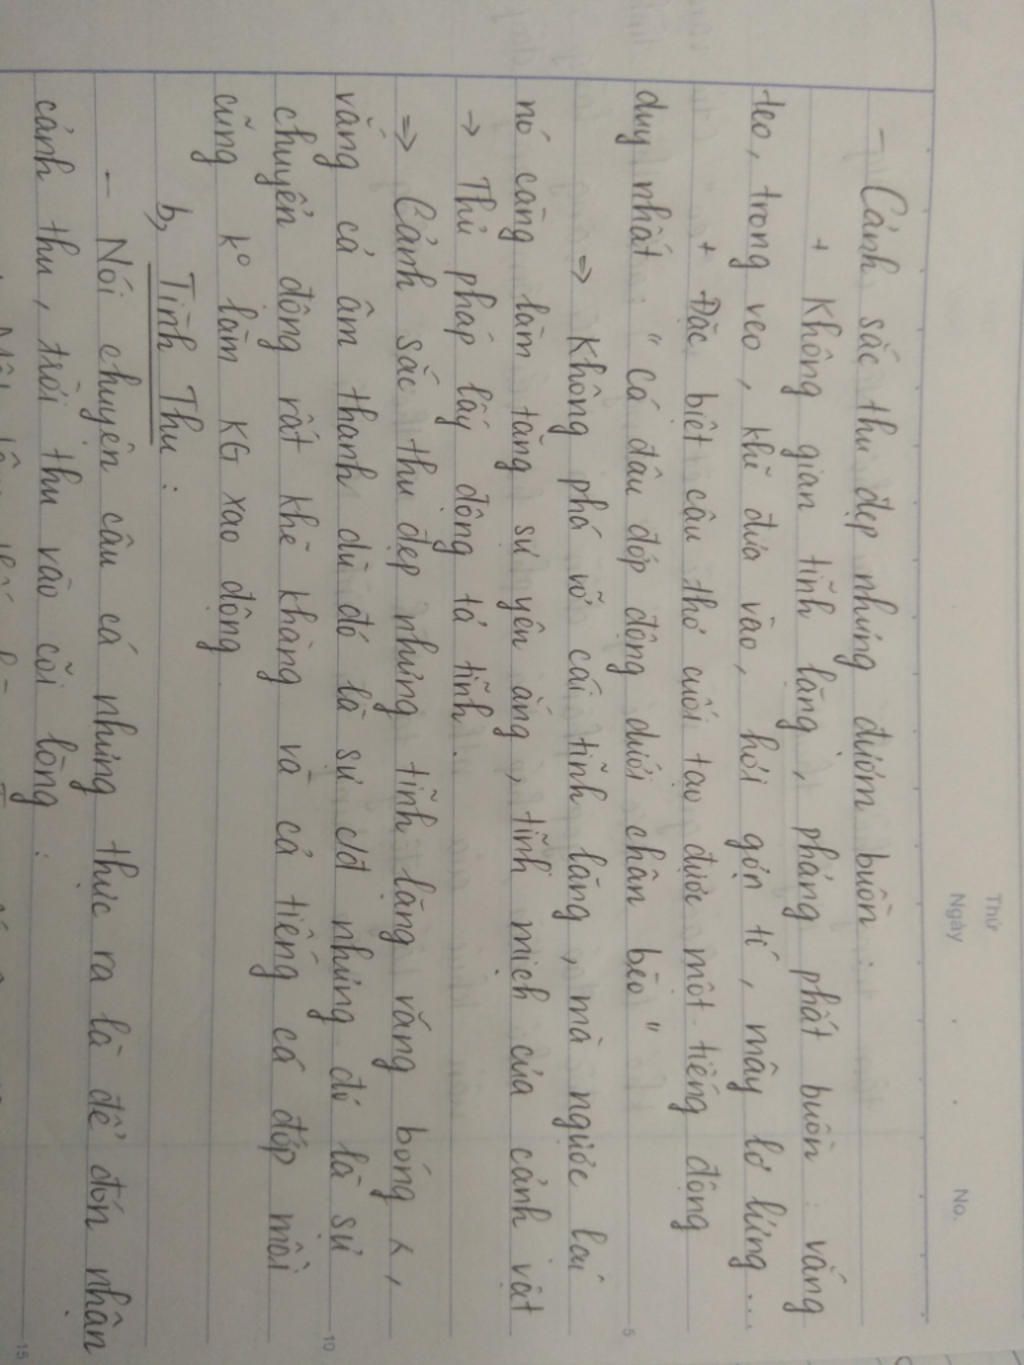 Thứ
Ngày . . No.
- Cảnh sắc thu đẹp nhưng đượm buồn :
+ Không gian tĩnh lặng, phảng phất buồn : vắng
teo, trong veo, khẽ đưa vào, hơi gợn tí, mây lơ lửng ...
+ Đặc biệt câu thơ cuối tạo được một tiếng động
duy nhất : " cá đâu đớp động dưới chân bèo "
⇒ Không phá vỡ cái tĩnh lặng, mà ngược lại
nó càng làm tăng sự yên ắng, tĩnh mịch của cảnh vật
→ Thủ pháp lấy động tả tĩnh.
⇒ Cảnh sắc thu đẹp nhưng tĩnh lặng vắng bóng ,
vắng cả âm thanh dù đó là sự c/đ nhưng đó là sự
chuyển động rất khẽ khàng và cả tiếng cá đớp mồi
cũng k° làm KG xao động.
b, Tình Thu :
- Nói chuyện câu cá nhưng thực ra là để đón nhận
cảnh thu, trời thu vào cõi lòng :
5
10
15